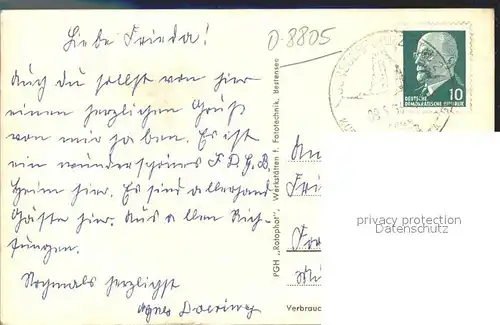 Liebe Frieda!
Auch Du sollst von hier
einen herzlichen Gruß
von mir haben. Es ist
ein wunderschönes F.D.G.B.
Heim hier. Es sind allerhand
Gäste hier. Aus allen Rich-
tungen.
Nochmals herzlichst
Agnes Doering
O-8805
PGH „Rotophot", Werkstätten f. Fototechnik, Bestensee
10
DEUTSCHE
DEMOKRATISCHE REPUBLIK
An
Fri
privacy protection
Datenschutz
Verbrauc